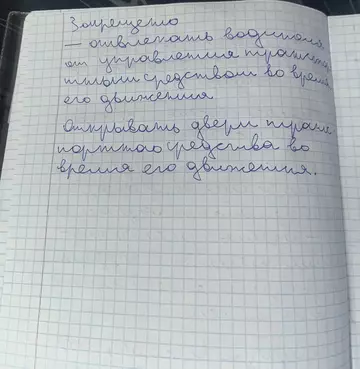 Запрещено
— отвлекать водителя
от управления транспор
тным средством во время
его движения
Открывать двери транс
портного средства во
время его движения.